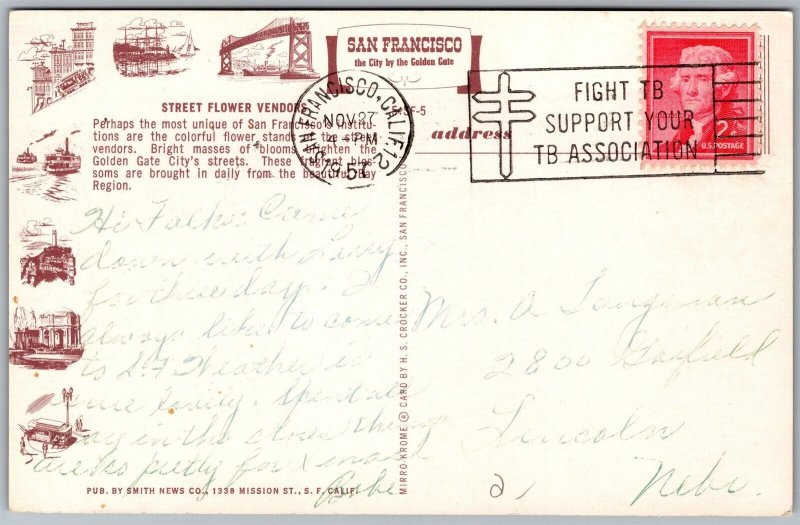 SAN FRANCISCO
the City by the Golden Gate
STREET FLOWER VENDORS
Perhaps the most unique of San Francisco's institu-
tions are the colorful flower stands and street
vendors. Bright masses of blooms brighten the
Golden Gate City's streets. These fragrant blos-
soms are brought in daily from the beautiful Bay
Region.
SF-5
address
SAN FRANCISCO, CALIF. 12
NOV 27
PM
FIGHT TB
SUPPORT YOUR
TB ASSOCIATION
2¢
U.S. POSTAGE
Hi Folks: Came
down with
for three days. I
always like to come
to S.F. Weather is
lovely. Spent all
day in the stores they
are so pretty for Xmas.
Babe
MIRRO-KROME ® CARD BY H. S. CROCKER CO., INC., SAN FRANCISCO
Mrs. A
2800 Garfield
Lincoln
Nebr.
PUB. BY SMITH NEWS CO., 1338 MISSION ST., S. F. CALIF.